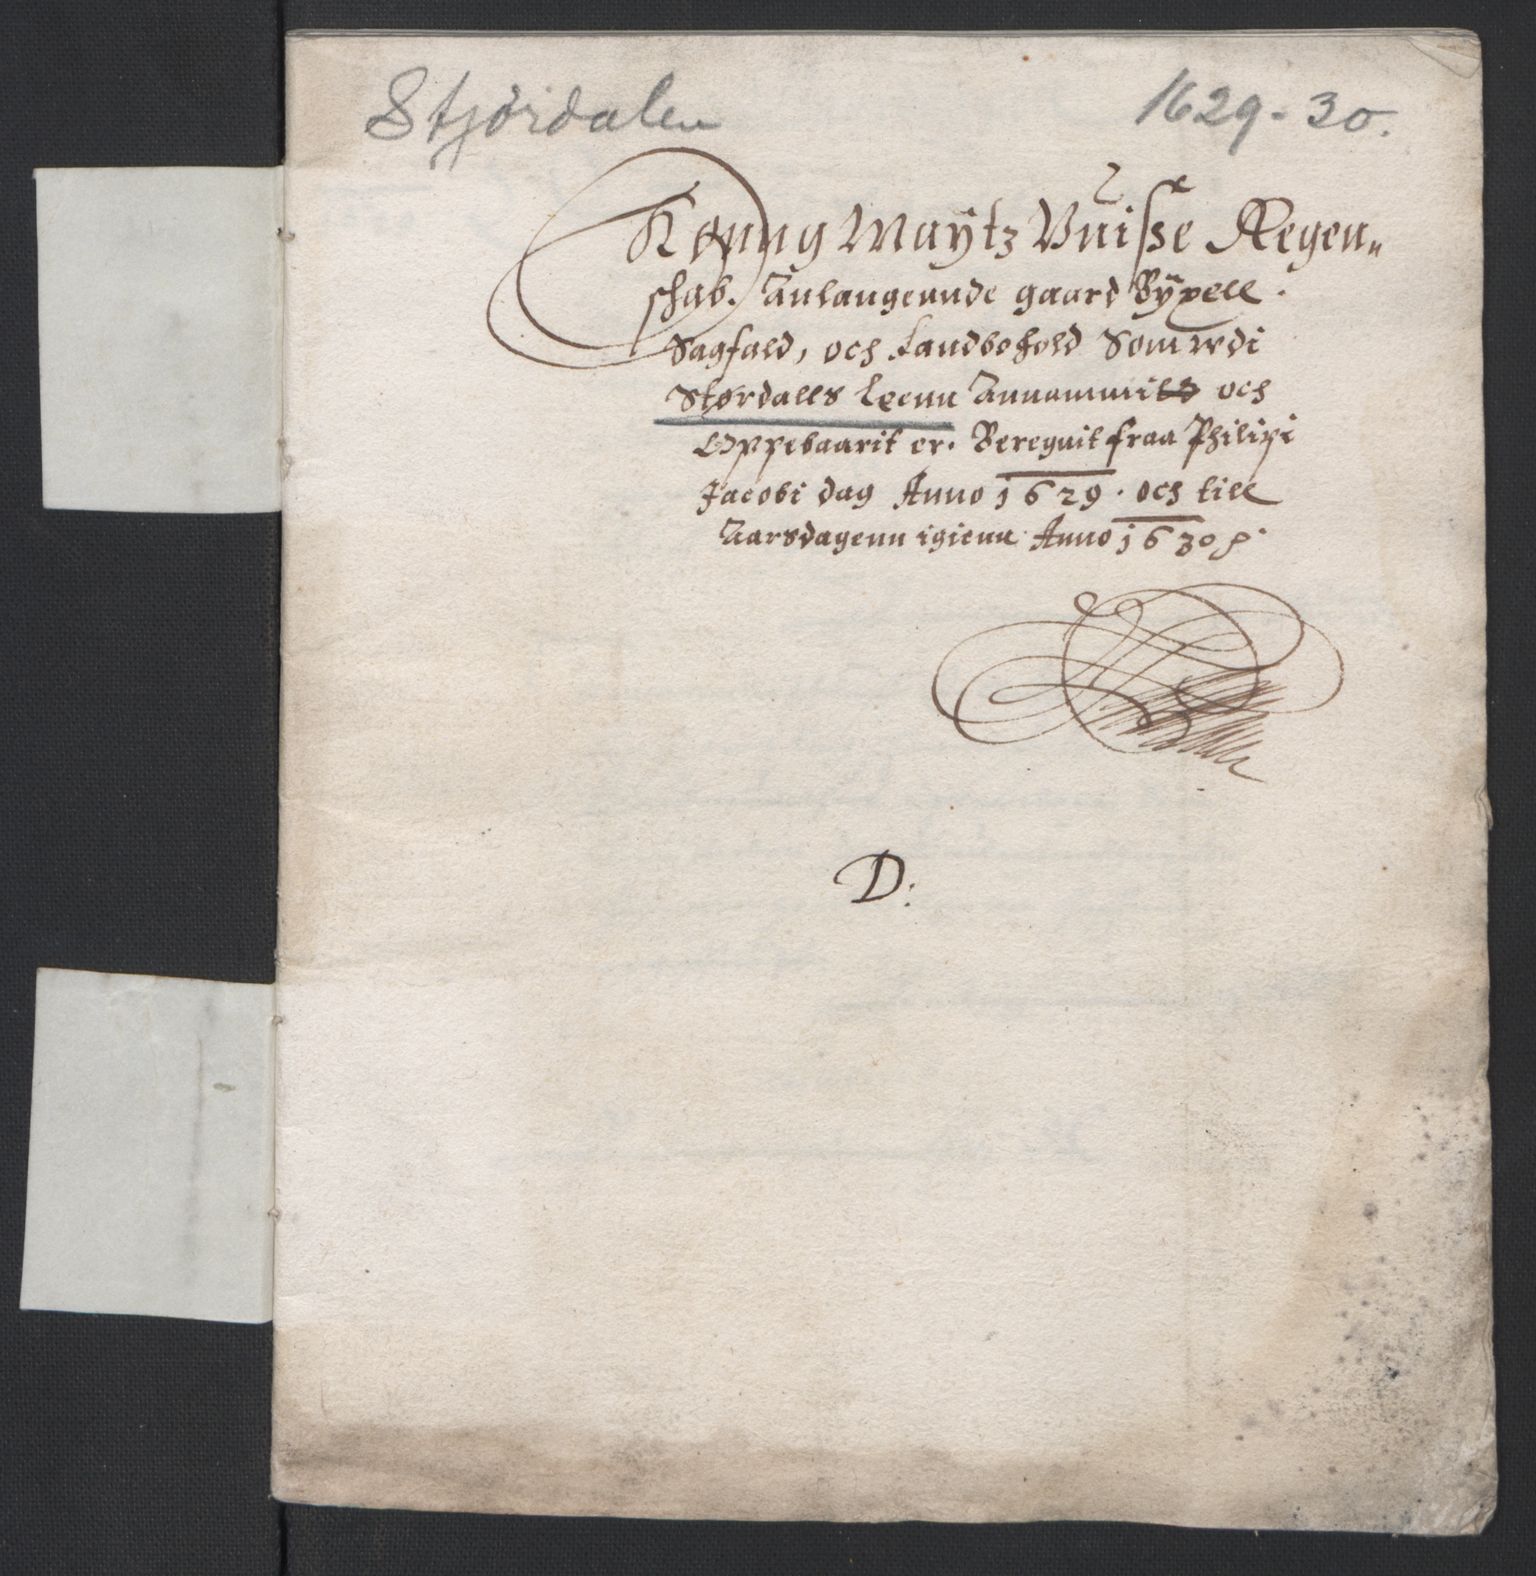 Stjördalen 1629-30.
Konng Maÿtz Vuisse Regen„
schab. Anlangennde gaard Bÿxell.
Sagfald, och Landbohold Som wdi
Størdalls Leenn Annammitt och
Oppebaarit er. Beregnit fraa Philipi
Jacobi dag Anno 1629. och till
Aarsdagenn igienn Anno 1630
D: